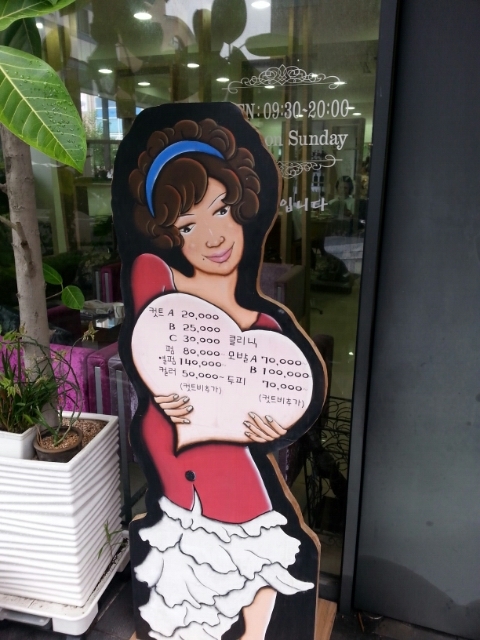 EN: 09:30-20:00
on Sunday
입니다
컷트 A 20,000
B 25,000
C 30,000 클리닉
펌 80,000~ 모발 A 70,000~
열펌 140,000~ B 100,000
컬러 50,000~ 두피 70,000~
(컷트비추가) (컷트비추가)